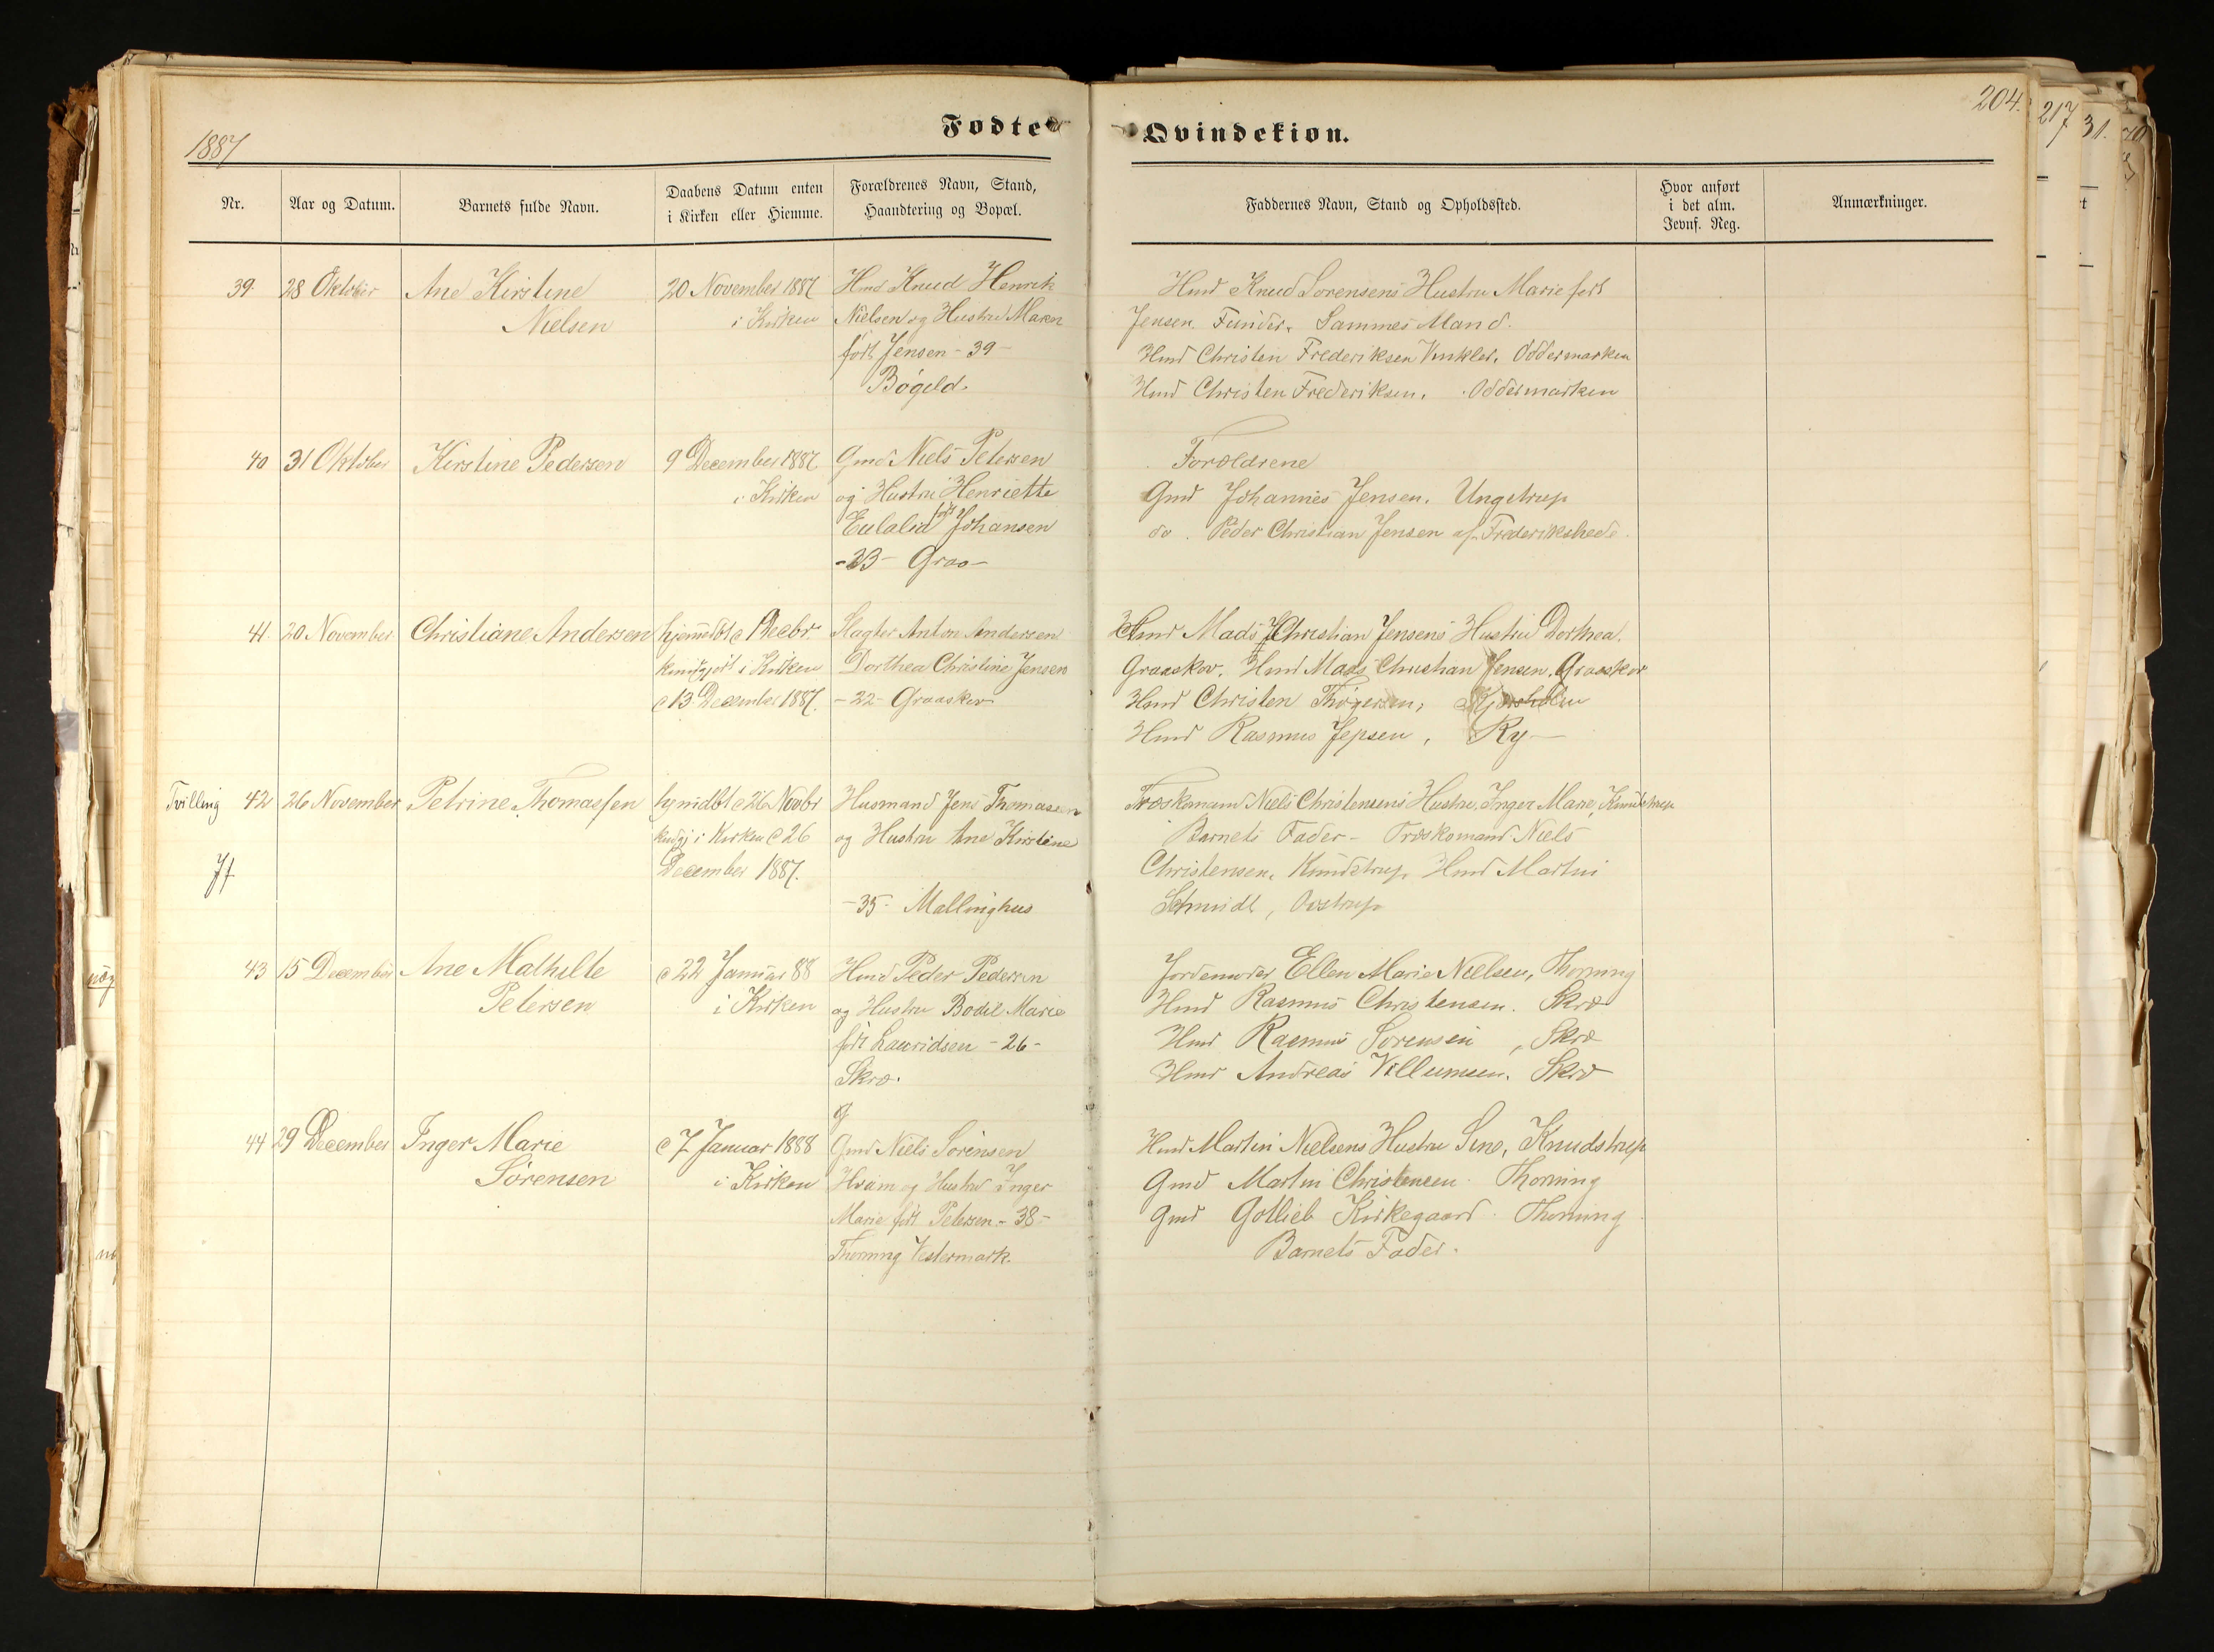 1887
Fødte
Qvindekiøn.
204.
217
31.
Nr.
Aar og Datum.
Barnets fulde Navn.
Daabens Datum enten
i Kirken eller Hiemme.
Forældrenes Navn, Stand,
Haandtering og Bopæl.
Faddernes Navn, Stand og Opholdssted.
Hvor anført
i det alm.
Jevnf. Reg.
Anmærkninger.
39. 28 Oktober Ane Kirstine 20 November 1887 Hmd Knud Henrik
Nielsen i Kirken Nielsen og Hustru Maren
født Jensen - 39 -
Bøgild.
Hmd Knud Sørensens Hustru Marie født
Jensen. Funder. Sammes Mand.
Hmd Christen Frederiksen Vinkler, Oddermarken
Hmd Christen Frederiksen. Oddermarken
40 31 Oktober Kirstine Pedersen 9 December 1887 Gmd Niels Petersen
i Kirken og Hustru Henriette
Eulalia født Johansen
- 23 - Graa -
Forældrene
Gmd Johannes Jensen. Ungstrup
do. Peder Christian Jensen af Frederikshede.
41. 20 November Christiane Andersen hjemmedbt d 1 Decbr. Slagter Anton Andersen
kundgjort i Kirken Dorthea Christine Jensen
d 13 December 1887. - 22 - Graaskov
Hmd Mads Christian Jensens Hustru Dorthea.
Graaskov. Hmd Mads Christian Jensen. Graaskov
Hmd Christen Thøgersen,
Hmd Rasmus Jepsen, Ry -
Tvilling 42 26 November Petrine Thomassen hjmdbt d 26 Novbr Husmand Jens Thomasen
kundgj i Kirken d 26 og Hustru Ane Kirstine
December 1887.
- 35 - Mallinghus
Træskomand Niels Christensens Hustru, Inger Marie, Knudstrup
Barnets Fader - Træskomand Niels
Christensen. Knudstrup Hmd Martin
Schmidt, Avstrup
43 15 December Ane Mathilde d 22 Januar 88 Hmd Peder Pedersen
Petersen i Kirken og Hustru Bodil Marie
født Lauridsen - 26 -
Skræ.
Jordemoder Ellen Marie Nielsen, Thorning
Hmd Rasmus Christensen. Skræ
Hmd Rasmus Sørensen, Skræ
Hmd Andreas Villumsen. Skræ
44 29 December Inger Marie d 7 Januar 1888 Gmd Niels Sørensen
Sørensen i Kirken Hvam og Hustru Inger
Marie født Petersen - 38 -
Thorning Vestermark.
Hmd Martin Nielsens Hustru Sine, Knudstrup
Gmd Martin Christensen. Thorning
Gmd Gotlieb Kirkegaard. Thorning
Barnets Fader.